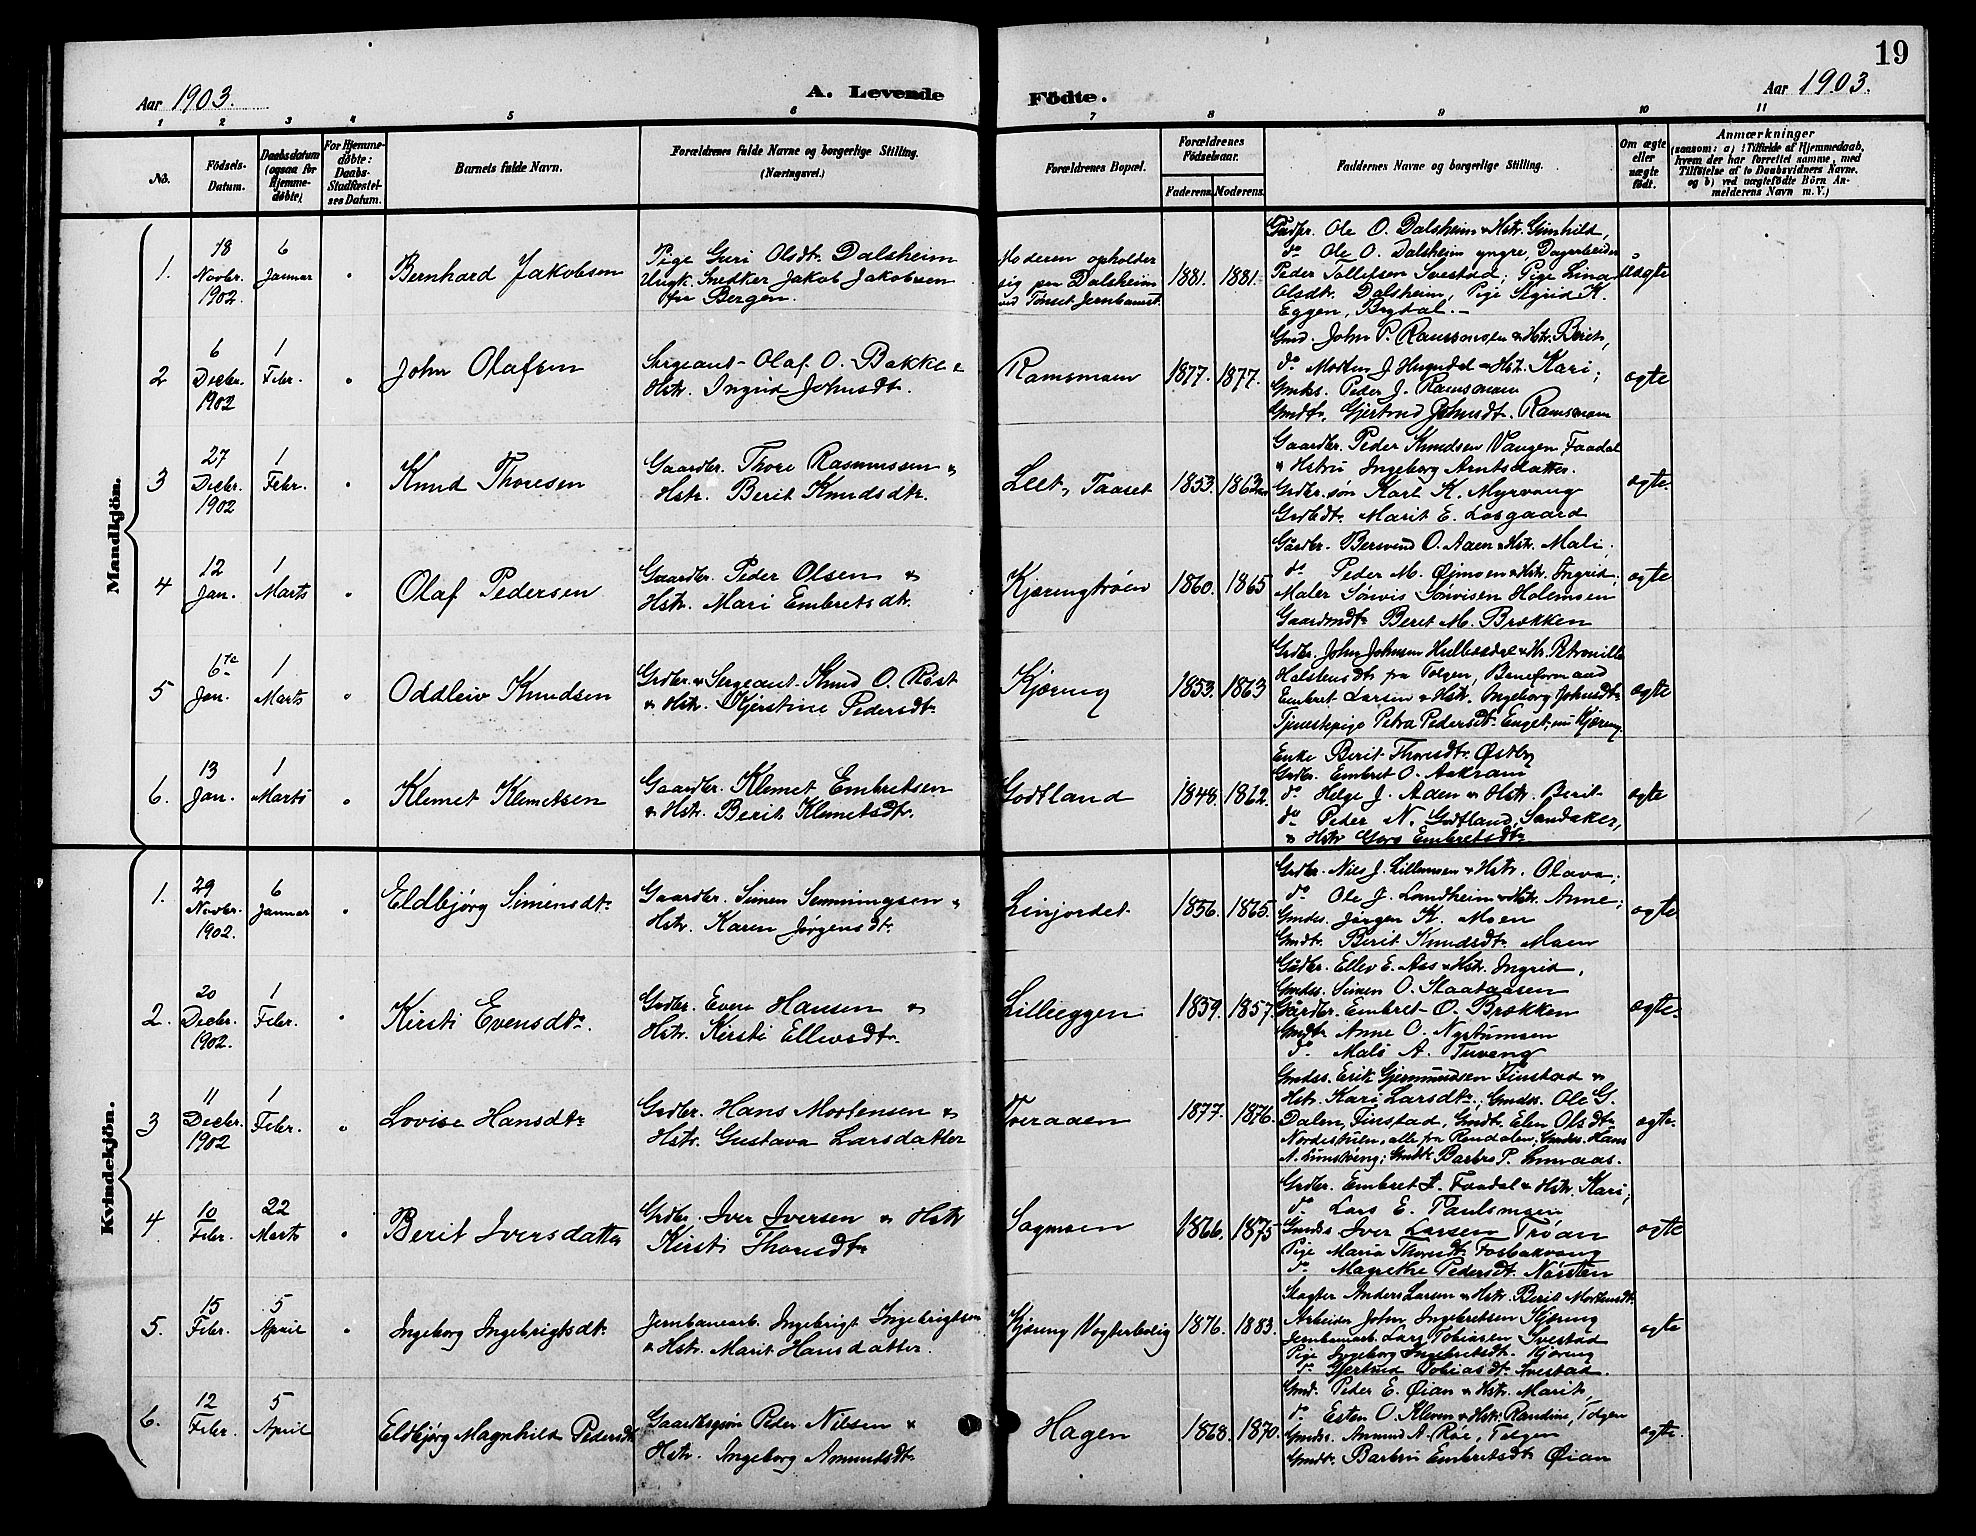 19
Aar 1903.
A. Levende
Födte.
Aar 1903.
1 2 3 4 5 6 7 8 9 10 11
No.
Födsels-
Datum.
Daabsdatum
(ogsaa for
Hjemme-
døbte)
For Hjemme-
døbte:
Daabs-
Stadfæstel-
ses Datum.
Barnets fulde Navn.
Forældrenes fulde Navne og borgerlige Stilling.
(Næringsvei.)
Forældrenes Bopæl.
Forældrenes
Födselsaar.
Faderens. Moderens.
Faddernes Navne og borgerlige Stilling.
Om ægte
eller
uægte
født.
Anmærkninger
(saasom: a) i Tilfælde af Hjemmedaab,
hvem der har forrettet samme, med
Tilføielse af to Daabsvidners Navne,
og b) ved uægtefødte Börn An-
melderens Navn m. V.)
Mandkjön.
1.
18
Novbr.
1902
6
Januar
Bernhard Jakobsen
Pige Guri Olsdtr. Dalsheim
Ungk. Snedker Jakob Jakobsen
fra Bergen.
Moderen opholder
sig paa Dalsheim
ved Tönset Jernbanest.
1881. 1881.
Gadbr. Ole O. Dalsheim & Hstr. Gunhild,
do Ole O. Dalsheim yngre, Dagarbeider
Peder Tollefsen Svestad; Pige Lina
Olsdtr. Dalsheim, Pige Sigrid K.
Eggen, Brydal.
Uægte
2
6
Decbr.
1902
1
Febr.
John Olafsen
Sergeant Olaf O. Bakke &
Hstr. Ingrid Johnsdt.
Ramsmoen
1877. 1877.
Gmd. John P. Ramsmoen & Hstr. Berit,
do Morten J. & Hst. Kari;
Gmks. Peder J. Ramsmoen
Gmdtr. Gjertrud Johnsdt. Ramsmoen
ægte
3
27
Decbr.
1902
1
Febr.
Knud Thoresen
Gaardbr. Thore Rasmussen &
Hstr. Berit Knudsdtr.
Leet, Taaset
1853. 1863
Gaardbr. Peder Knudsen Vangen, Faadal
& Hstru Ingeborg Arntsdatter.
Grdbr.søn Karl K. Myrvang
Grdbdt. Marit E. Losgaard
ægte
4
12
Jan.
1
Marts
Olaf Pedersen
Gaardbr. Peder Olsen &
Hstr. Mari Embretsdtr.
Kjæringtrøen
1860. 1865
Gårdbr. Bersvend O. Aaen & Hstr. Mali;
do Peder M. Øimoen & Hstr. Ingrid;
Maler Sönvis Sönvisen Holemsen
Gaardmdtr. Berit M. Brækken
ægte
5
6te
Jan.
1
Marts
Oddleiv Knudsen
Grdbr. & Sergeant Knud O. Røst
& Hstr. Kjerstine Pedersdtr
Kjæreng
1853. 1863
Grdbr. John Johnsen & Hr. Petronille
Halstensdtr. fra Tolgen, Baneformand
Embret Larsen & Hstr. Ingeborg Johnsdtr.
Tjenestepige Petra Pedersdt. Enget, nu Kjæreng.
ægte
6.
13
Jan.
1
Marts
Klemet Klemetsen
Gaardbr. Klemet Embretsen
& Hstr. Berit Klemetsdtr.
Godtland
1848. 1862.
Enke Berit Thoresdtr. Østby
Grdbr. Embret O. Aakram
do Helge J. Aaen & Hstr. Berit
do Peder N. Godtland, Sandaker,
& Hstr. Goro Embretsdtr.
ægte
Kvindekjön.
1.
29
Novbr.
1902.
6
Januar
Eldbjörg Simensdtr
Gaardbr. Simen Semmingsen &
Hstr. Karen Jørgensdtr.
Linjordet
1856. 1865.
Grdbr. Nils J. Lillemoen & Hstr. Olava;
do Ole J. Landheim & Hstr. Anne;
Gmdss. Jörgen K. Moen
Gmdtr. Berit Knudsdtr. Moen
ægte
2.
20
Decbr.
1902.
1
Febr.
Kirsti Evensdtr.
Grdbr. Even Hansen &
Hstr. Kirsti Ellevsdtr.
Lilleeggen
1859. 1857.
Gårdbr. Ellev E. Aas & Hstr. Ingrid,
Gmdss. Simen O. Staataasen
Gårdbr. Embret O. Brækken
Gmdtr. Anne O. Nystumoen
do Mali A. Tuveng
ægte.
3
11
Decbr.
1902
1
Febr.
Lovise Hansdtr
Grdbr. Hans Mortensen &
Hstr. Gustava Larsdatter
Tveraaen
1877. 1876.
Gmdss. Erik Gjermundsen Finstad &
Hstr. Kari Larsdtr.; Gmdss. Ole G.
Dalen, Finstad, Gmdtr. Elen Olsdtr
Nordistuen, alle fra Rendalen; Gmdss. Hans
ægte.
4.
10
Febr.
22
Marts
Berit Iversdatter
Grdbr. Iver Iversen & Hstr
Kirsti Thoresdtr
Sagmoen
1866. 1875
Grdbr. Embret I. Faadal & Hstr. Kari;
do Lars E. Paulsmoen
Gmdss Iver Larsen Trøan
Pige Maria Thoresdt. Fosbakvang
do Magrethe Pedersdt. Nørsten
ægte
5.
15
Febr.
5
April
Ingeborg Ingebrigtsdt.
Jernbanearb. Ingebrigt Ingebrigtsen
& Hstr. Marit Hansdatter.
Kjæreng Vogterbolig
1876. 1883.
Slagter Anders Larsen & Hstr. Berit Mortensdt.
Arbeider John Ingebretsen Kjæreng
Jernbanearb. Lars Tobiasen Svestad
Pige Ingeborg Ingebretsdt. Kjæreng
do Gjertrud Tobiasdt. Svestad.
ægte
6.
12
Febr.
5
April
Eldbjörg Magnhild Pedersdt
Gaardbrgsøn Peder Nilsen &
Hstr. Ingeborg Amundsdtr.
Hagen
1868. 1870.
Gmd. Peder E. Øian & Hstr. Marit,
do Esten O. Kleven & Hstr. Randine, Tolgen
Gmdss. Amund A. Røe, Tolgen
Gmdt. Barbro Embretsdt. Øian
ægte.